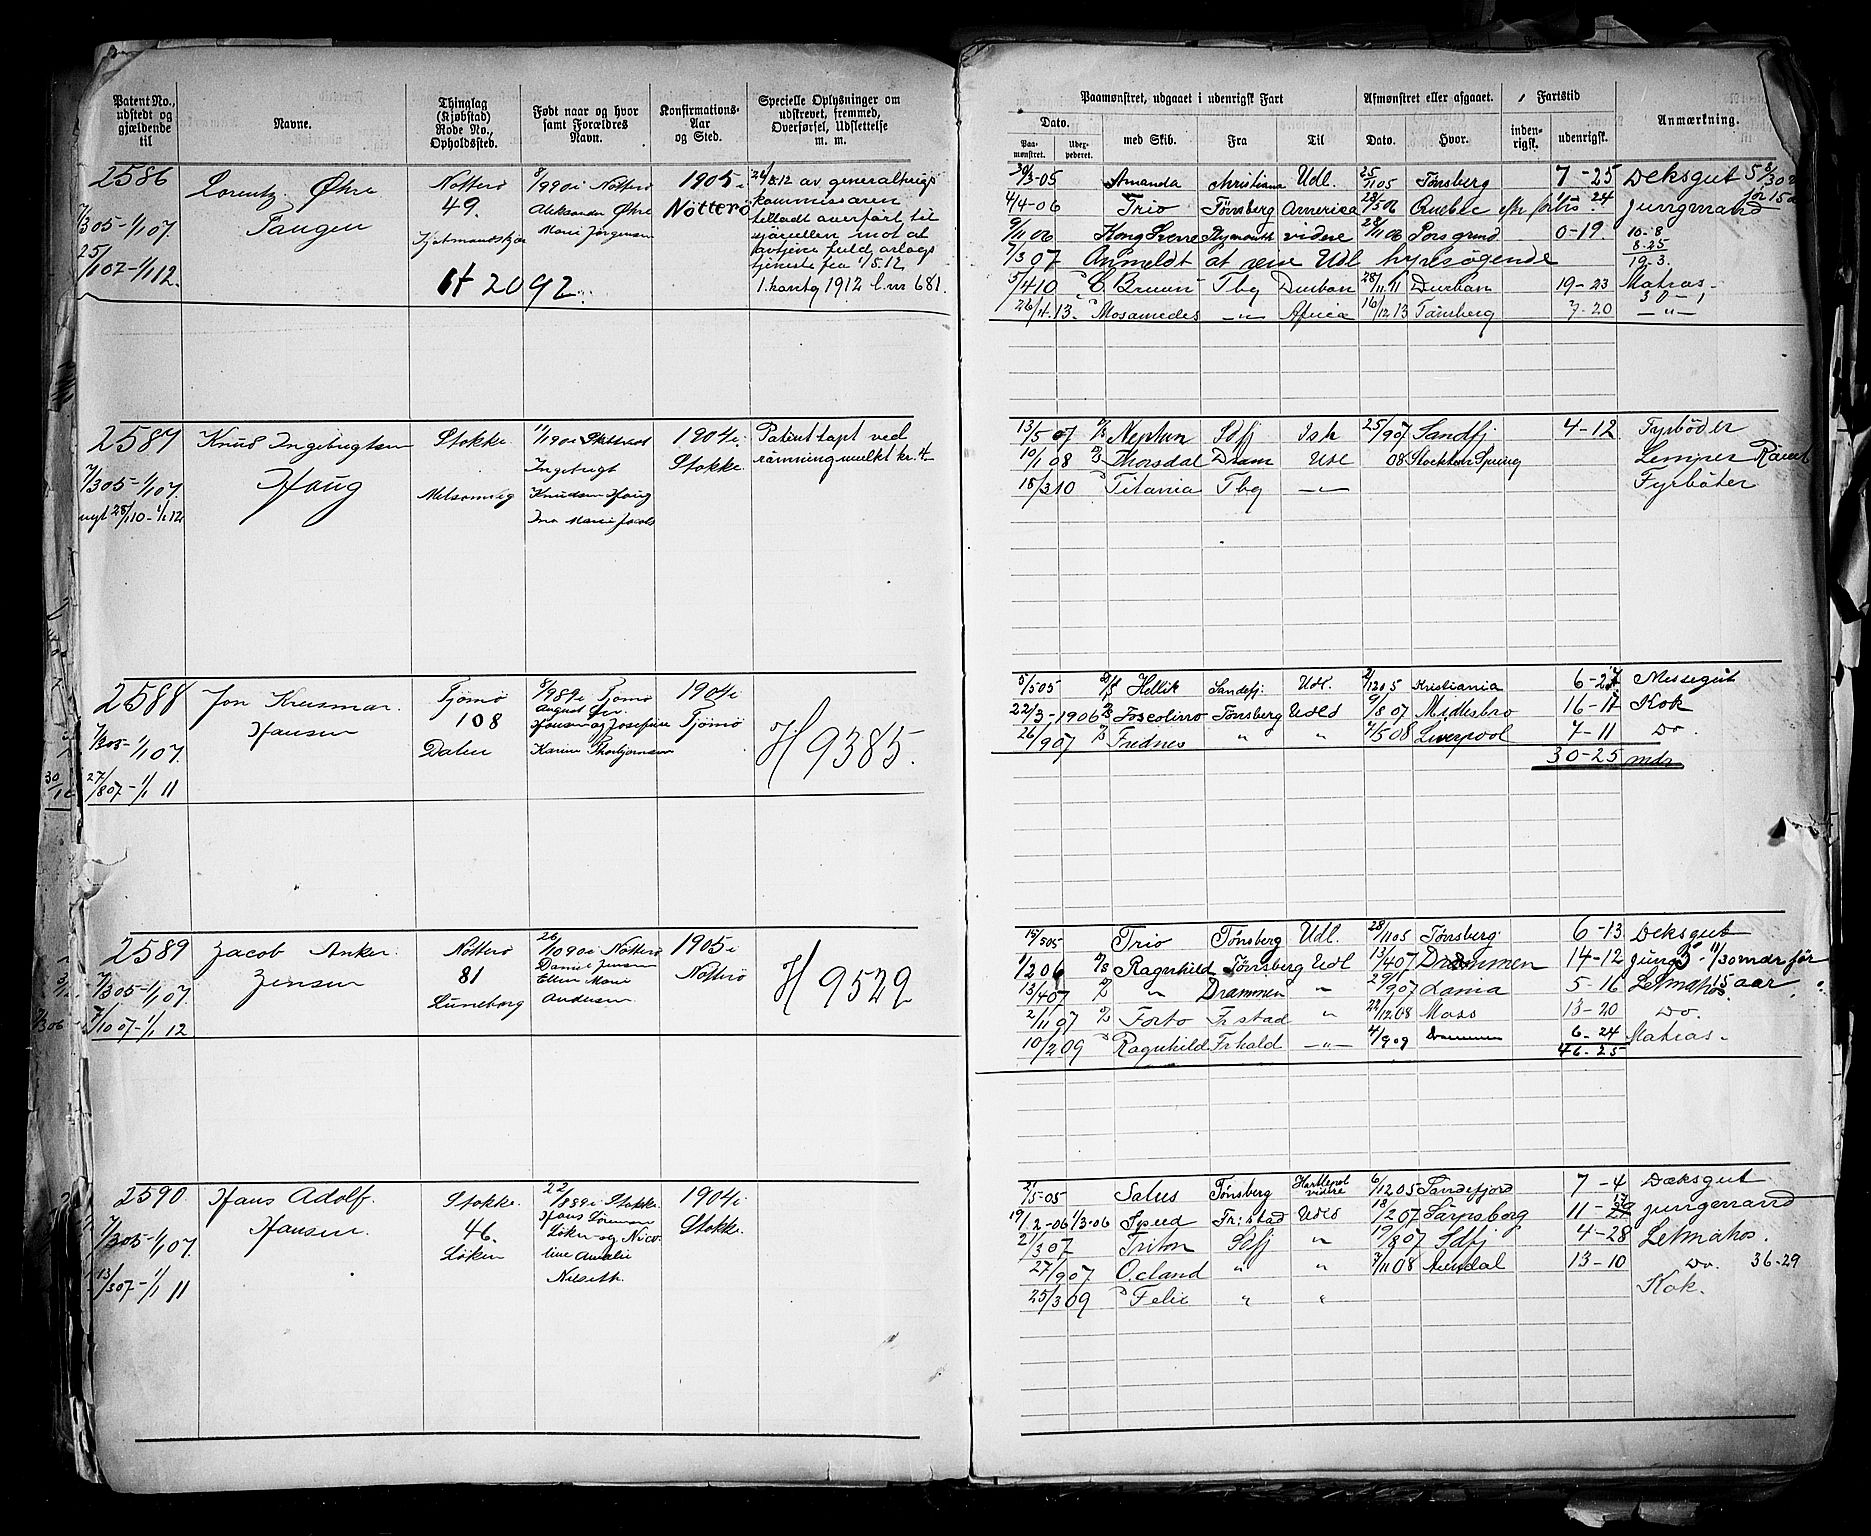 Patent No., udstedt og gjældende til
Navne.
Thinglag (Kjøbstad) Rode No., Opholdssteb.
Født naar og hvor samt Forældres Navn.
Konfirmations-Aar og Sted.
Specielle Oplysninger om udskrevet, fremmed, Overførsel, Udslettelse m. m.
Paamønstret, udgaaet i udenrigsk Fart
Afmønstret eller afgaaet.
Fartstid
Anmærkning.
Dato.
Paa-mønstret.
med Skib.
Fra
Til
Dato.
Hvor.
inden-rigsk.
udenrigsk.
2586
7/3 05-1/1 07
25/1 07-1/1 12.
Lorentz Øhre
Tangen
Nøtterø
49.
H 2092.
8/9 90 i Nøtterø
Aleksander Øhre
Marie Jørgensen
1905 i
Nøtterø
26/8.12 av generalkrigs
kommissæren
tilladt overført til
sjørullen mot at
avtjene fuld, orlogs
tjeneste fra 1/5.12
l.nr 681.
30/3-05 Amanda Christiania Udl. 25/11 05 Tønsberg 7-25 Deksgut
4/4-06 Trio Tønsberg Amerika 22/5 06 Quebec 1-24 Jungmand
9/11 06 Kong Sverre Plymouth videre 28/11 06 Porsgrund 0-19. 10-8
8-25
7/3 07 Anmeldt at være Udl hyresøgende 19-3.
5/4 10 C Bruun Tbg Durban 28/11 11 Durban 19-23 Matros
26/4.13. Mosamedes -"- Africa 16/12 13 Tønsberg 7-20 -"-
2587
7/3 05-1/1 07.
nyt 28/1 10-1/1 12
Knud Ingebrigtsen
Haug
Stokke
Melsomvig
Ingebrigt
Knudsen Haug
1904 i
Stokke.
Patent tapt ved
rømning mulkt kr. 4-
13/5 07 Neptun Sdfj Ish 25/9 07 Sandfj 4-12 Fyrbøder
10/1 08 Thorsdal Dram Udl 08 Lemper Rømt
18/3 10 Titania Tbg -"- Fyrbøter
2588
7/3 05-1/1 07.
27/8 07-1/1 11
Jon Krusmar
Hansen
Tjømø
108
Dalen
8/9 89 i Tjømø
Hansen og Josefine
Karine Thorbjørnsen
1904 i
Tjømø
H 9385.
5/5 05 Hellik Sandefj. Udl. 2/12 05 Kristiania 6-27 Messegut
22/3-1906 Foscolino Tønsberg Udld 9/8 07 Midlesbro 16-17 Kok
26/9 07 Frednes " " 7/5 08 Liverpool 7-11 Do.
30-25 mdr
2589
7/3 05-1/1 07.
7/10 07-1/1 12
Jacob Anker
Jensen
Nøtterø
81
Luneborg
26/10 90 i Nøtterø
Daniel Jensen
Ellen Marie
Andersen
1905 i
Nøtterø
H 9529
15/5 05 Trio Tønsberg Udl. 28/11 05 Tønsberg. 6-13 Deksgut
1/2 06 Ragnhild Tønsberg Udl 13/4 07 Drammen 14-12 mdr før
13/4 07 " Drammen " 29/9 07 Laniа 5-16 Letmatros 15 aar
2/11 07 Forto Frstad " 22/12 08 Moss 13-20 Do.
10/2 09 Ragnhild Frhald -"- 4/9 09 Drammen 6-24 Matros
46-25
2590
7/3 05-1/1 07.
13/3 07-1/1 11
Hans Adolf
Hansen
Stokke.
46.
Løken
22/8 89 i Stokke
Løken og Nico-
line Amalie
1904 i
Stokke.
21/5-05 Salus Tønsberg Hartlepol videre 6/12 05 Sandefjord 7-4 Dæksgut
19/1.2-06 1/3-06 Speed Fr:stad Udld 18/2 07 Sarpsborg 11-29 17 jungmand
21/3 07 Triton Sdfj " 19/8 07 Sdfj 4-28 Letmatros.
27/9 07 Ocland " " 7/11 08 Arendal 13-10 Do. 36-29
25/3 09 Felix " " Kok.